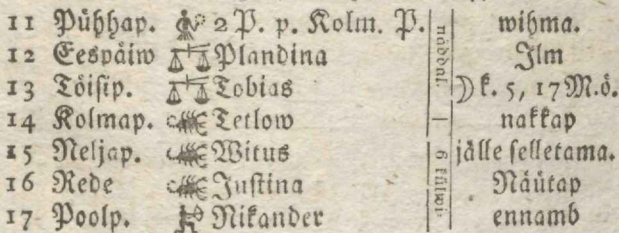 11 Pühhap. 2 P. p. Kolm. P. wihma.
12 Eespäiw Plandina Ilm
13 Töisip. Tobias ☽ k. 5, 17 M. ö.
14 Kolmap. Tetlow nakkap
15 Neljap. Witus jälle selletama.
16 Rede Justina Näütap
17 Poolp. Nikander ennamb
näddal. | 6 külwi-